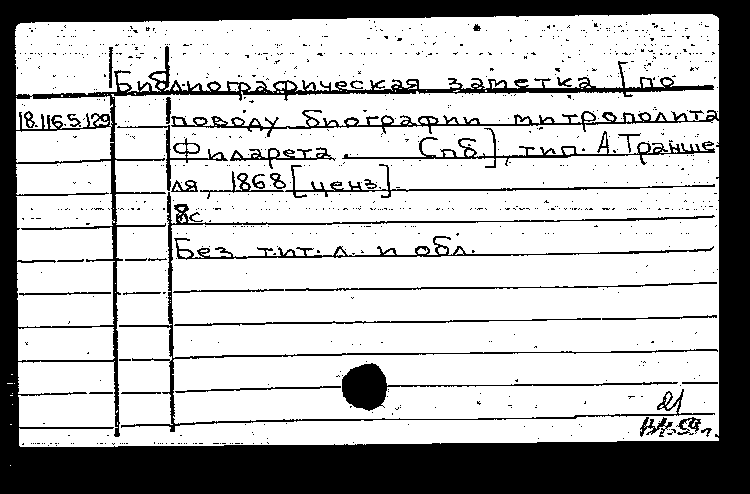 Библиографическая заметка [по
18.116.5.129 поводу биографии митрополита
Филарета. Спб.], тип. А. Транше-
ля, 1868 [ценз].
8с.
Без тит. л. и обл.